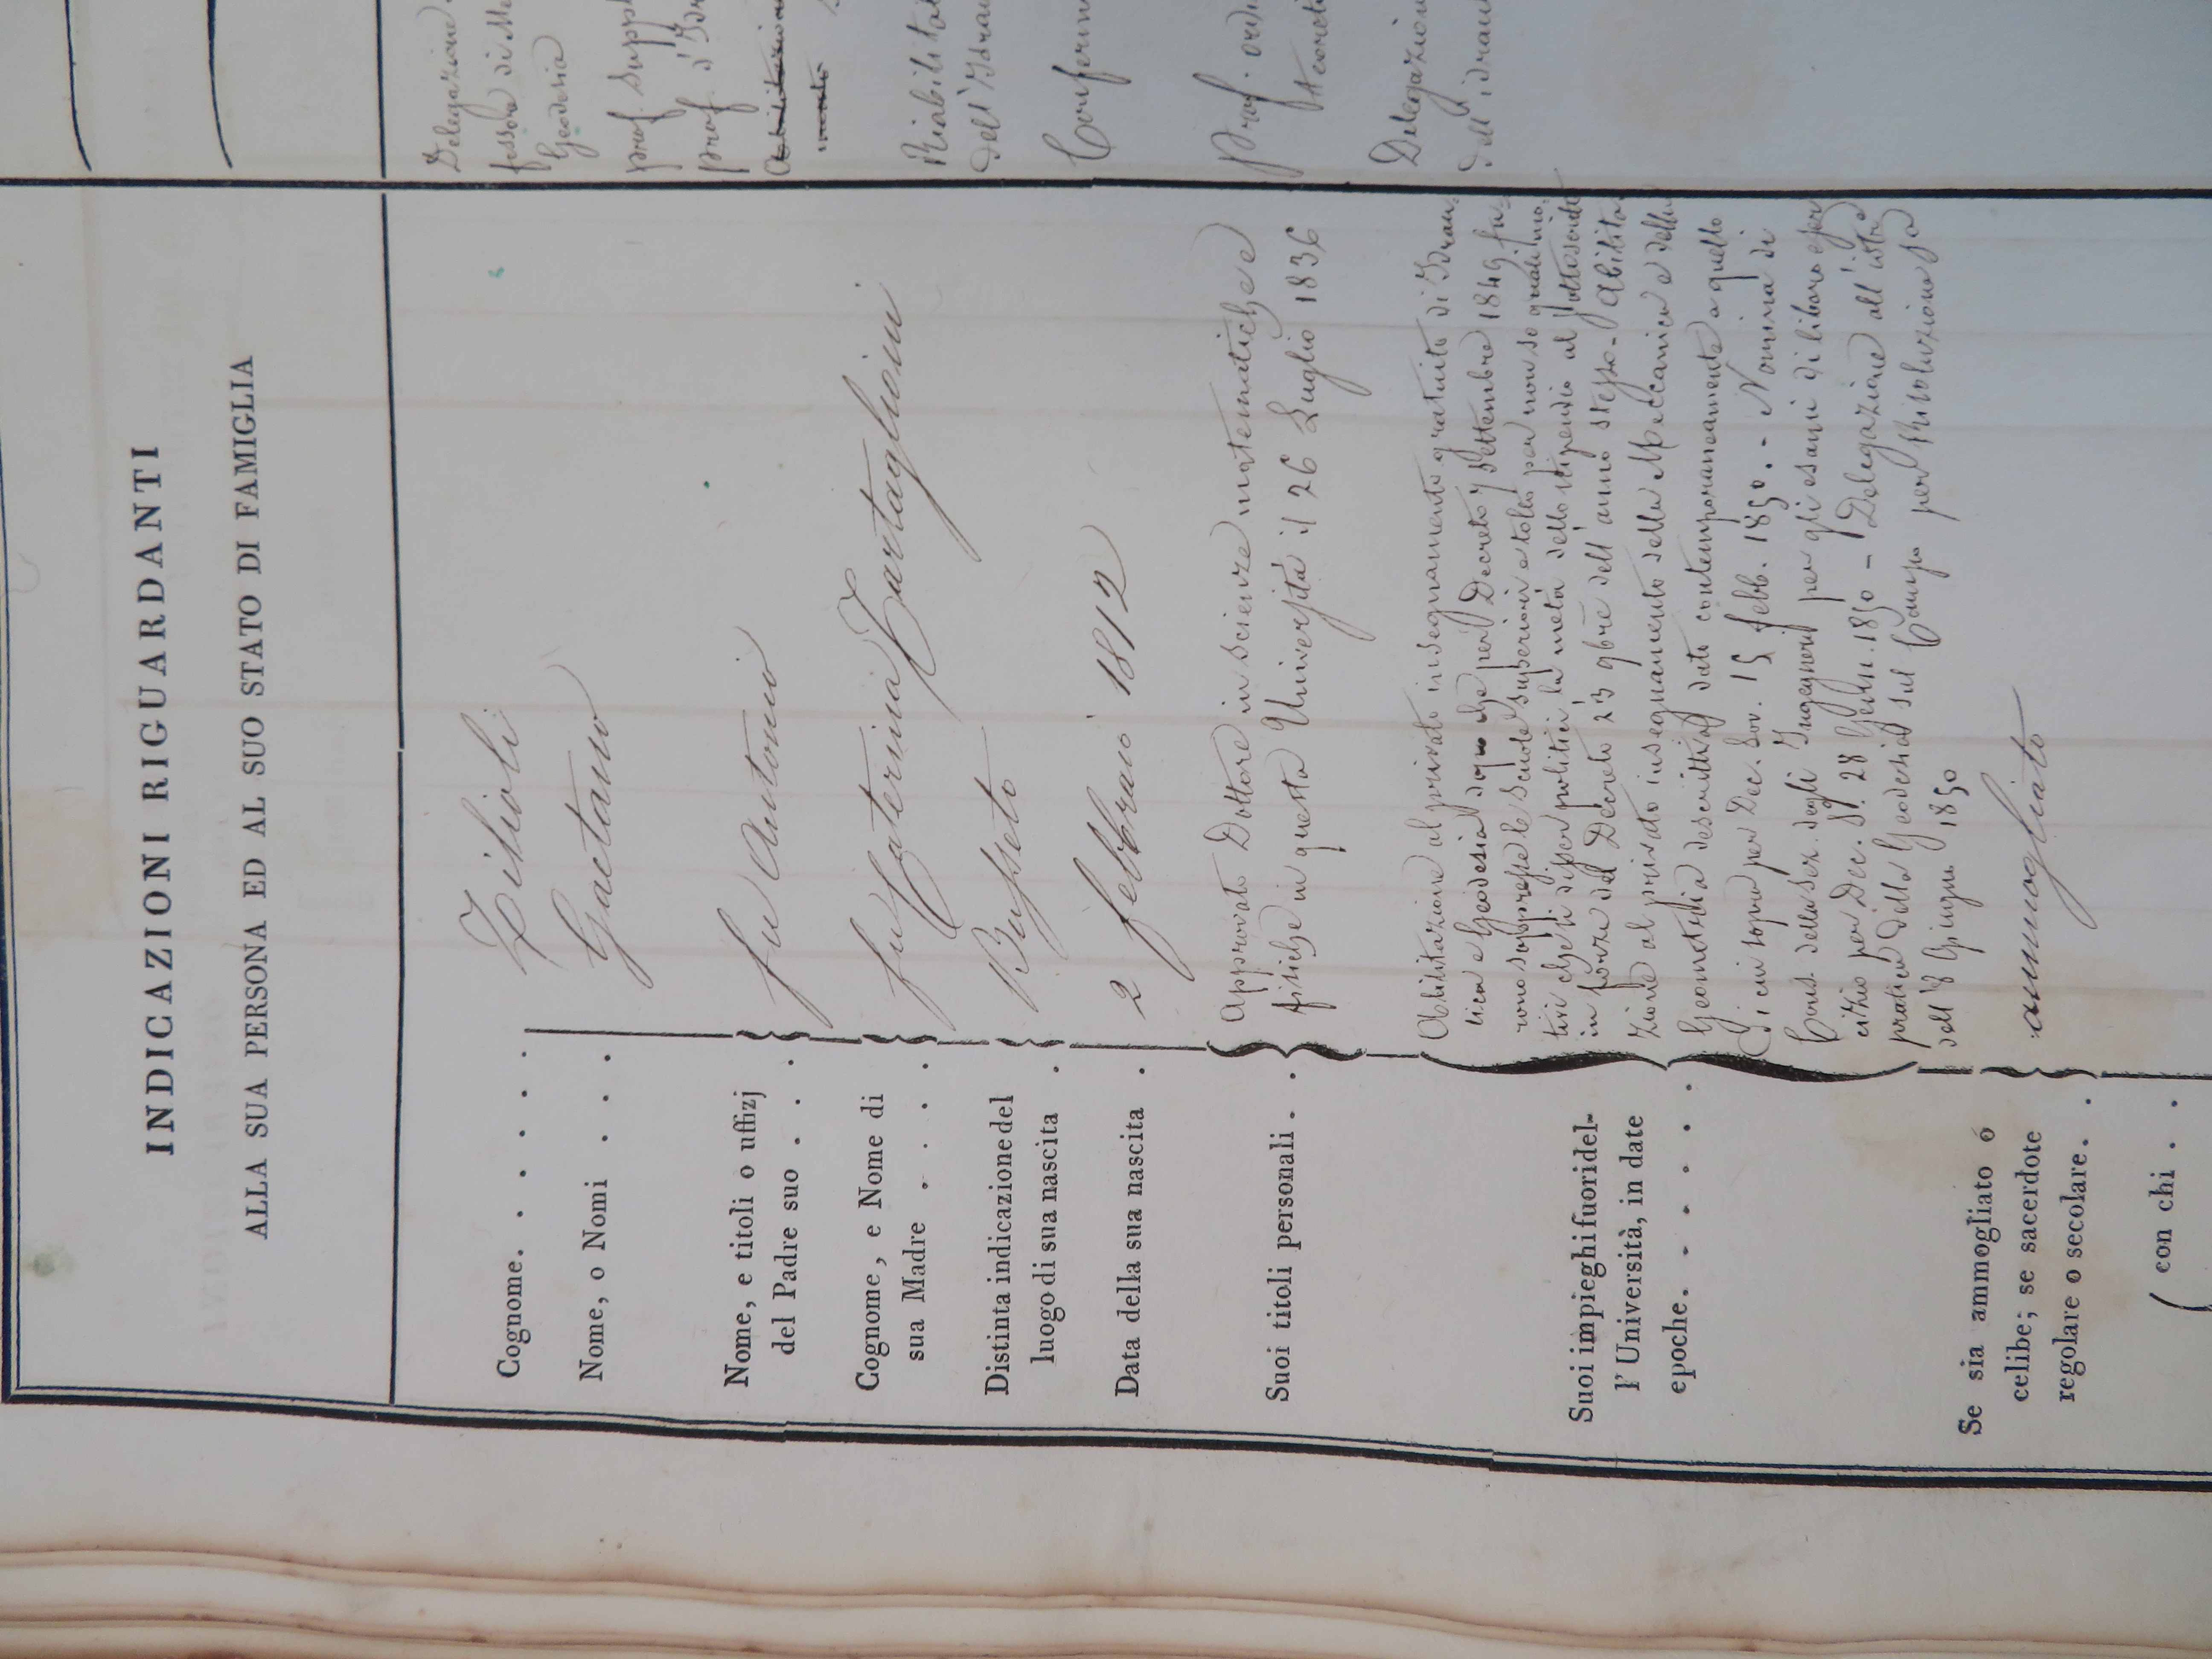 INDICAZIONI RIGUARDANTI
ALLA SUA PERSONA ED AL SUO STATO DI FAMIGLIA
Cognome. . . . . . Zilioli
Nome, o Nomi . . . Gaetano
Nome, e titoli o uffizj
del Padre suo . . . fu Antonio
Cognome, e Nome di
sua Madre . . . . fu Caterina Tartaglioni
Distinta indicazione del
luogo di sua nascita . Busseto
Data della sua nascita . 2 febbraio 1812
Suoi titoli personali . .
Approvato Dottore in scienze matematiche e
fisiche in questa Università il 26 Luglio 1836
Suoi impieghi fuori del-
l' Università, in date
epoche. . . . . .
Abilitazione al privato insegnamento gratuito di Idrau-
lica e Geodesia dopo che per Decreto 7 Settembre 1849 fu-
rono soppresse le Scuole Superiori e tolta per non so quali mo-
tivi che si disser politici la metà dello stipendio al sottoscritto
in forza del Decreto 23 9bre dell' anno stesso. Abilita-
zione al privato insegnamento della Meccanica e della
Geometria descrittiva dato contemporaneamente a quello
di cui sopra per Dec. Sov. 15 febb. 1850. - Nomina di
Cons. della Sez. degli Ingegneri per gli esami di libero eser
cizio per Dec. 28 Genn. 1850 - Delegazione all' istr.e
pratica della Geodesia sul Campo per Risoluzione
dell' 8 Giugno 1850
Se sia ammogliato o
celibe; se sacerdote
regolare o secolare. . ammogliato
con chi . .
Delegazione
fessore di Me
Geodesia
prof. Suppl
prof. d' Idr
Riabilitaz
dell' Idrau
Conferm
Prof. ordi
teoret
Delegazion
dell' idrau